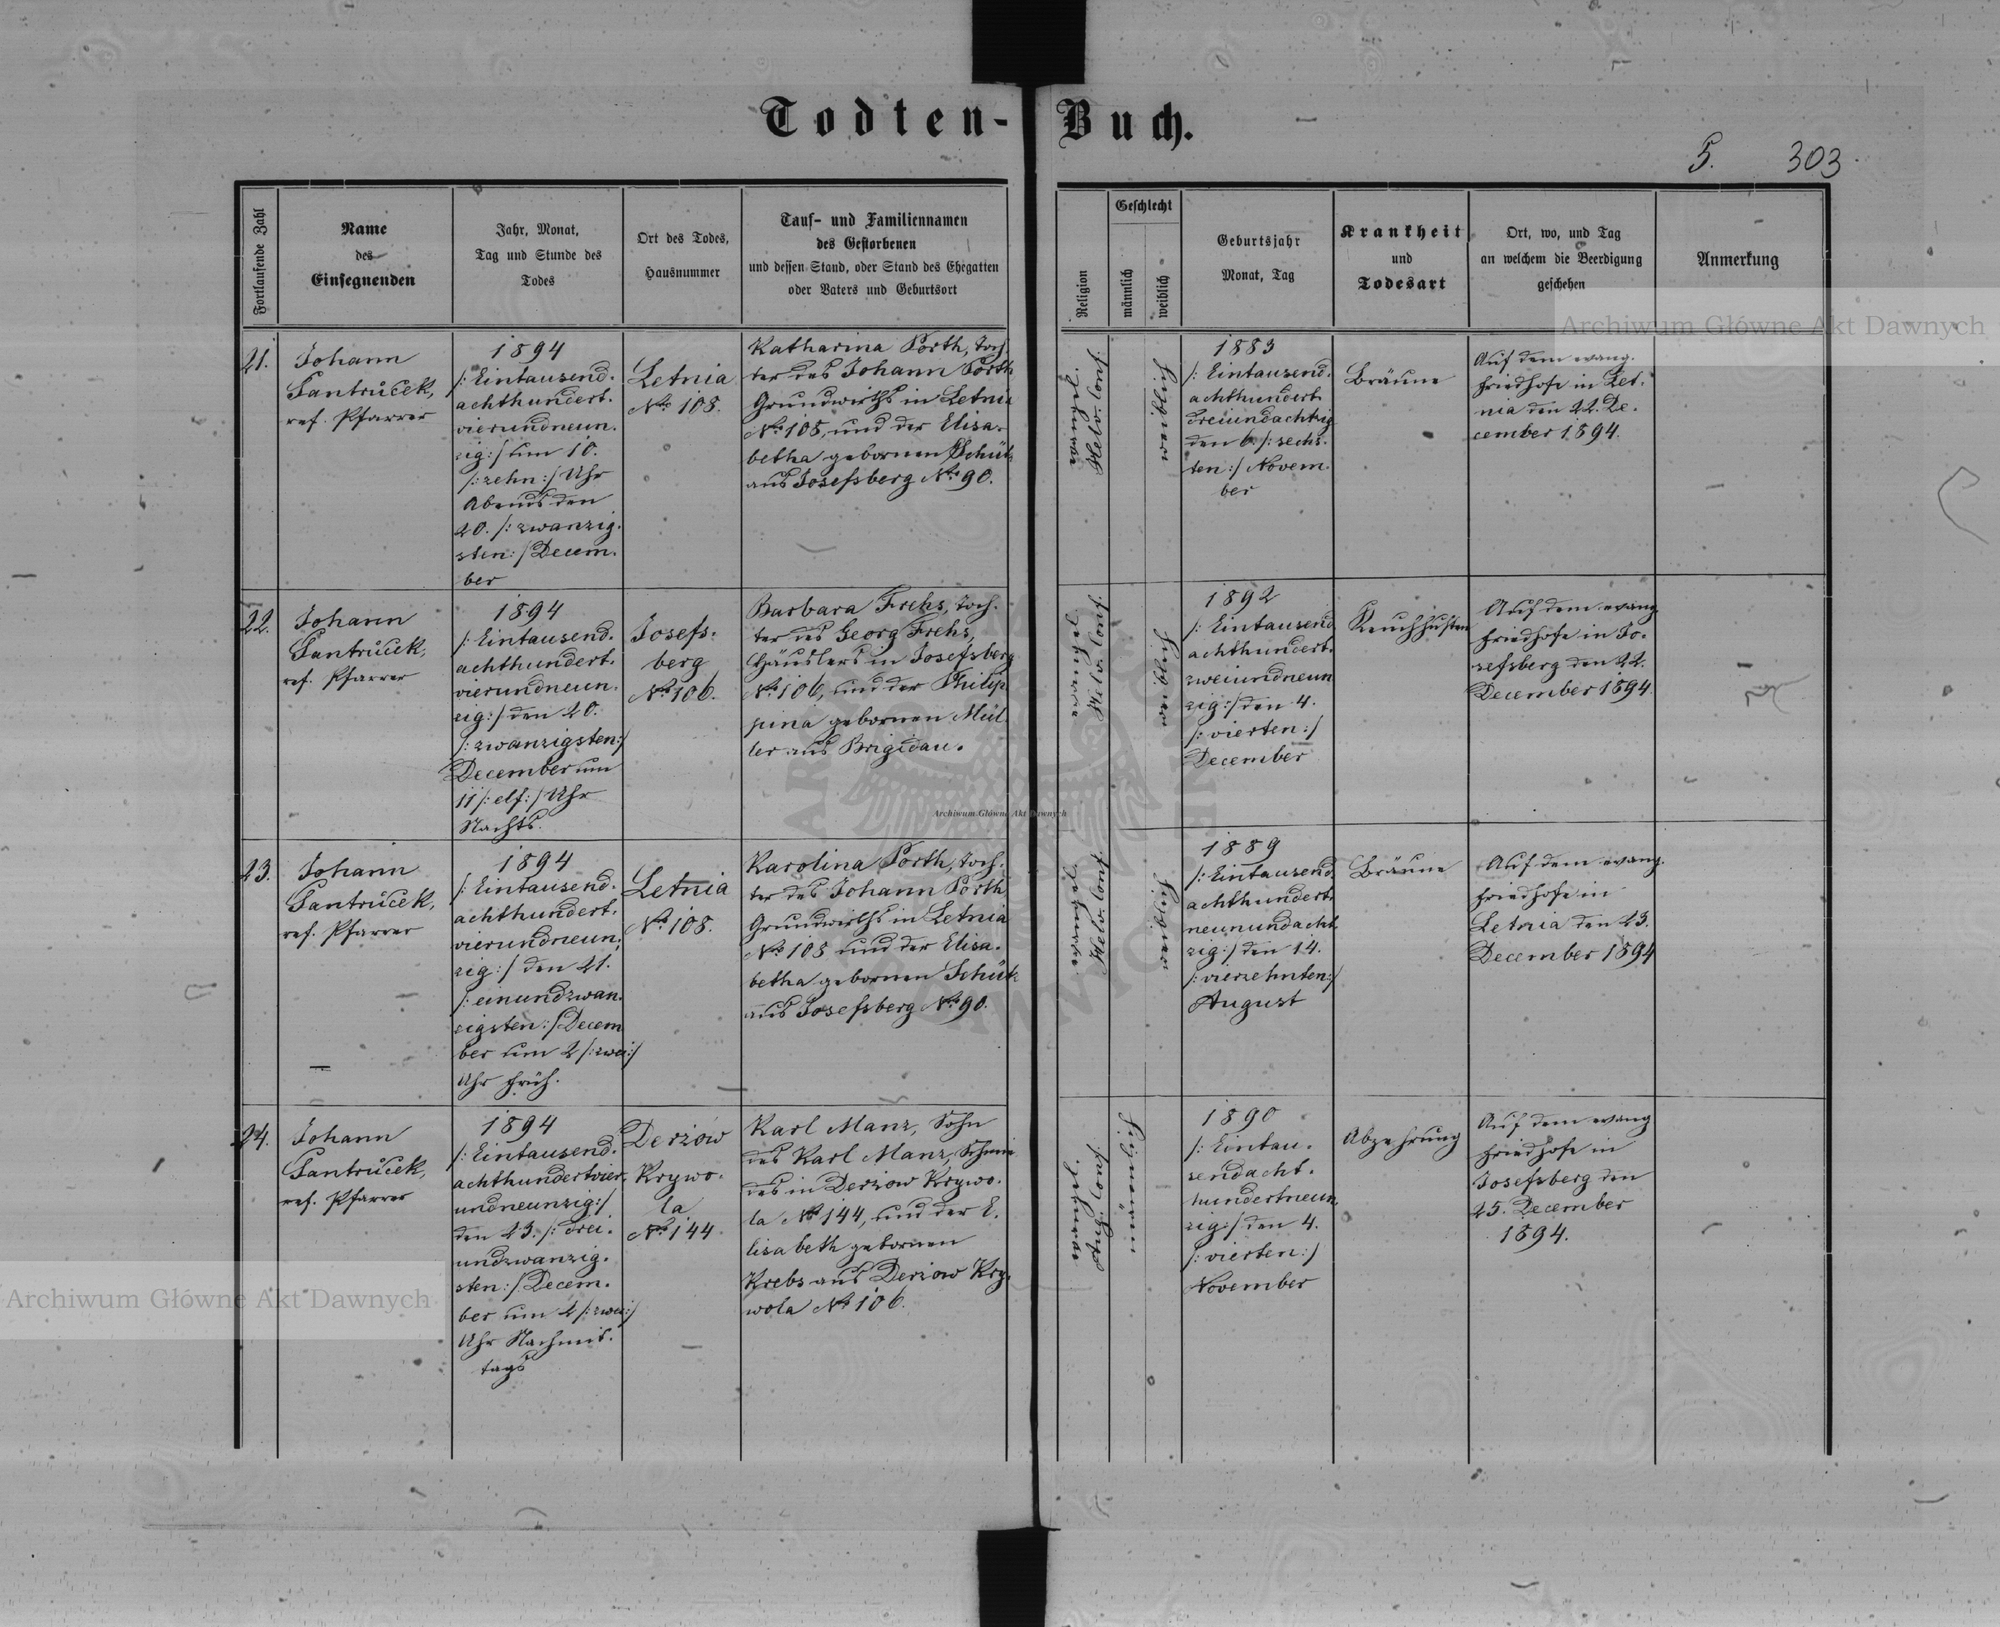 Todten-Buch.
5. 303
Fortlaufende Zahl
Name
des
Einsegnenden
Jahr, Monat,
Tag und Stunde des
Todes
Ort des Todes,
Hausnummer
Tauf- und Familiennamen
des Gestorbenen
und dessen Stand, oder Stand des Ehegatten
oder Vaters und Geburtsort
Religion
Geschlecht
männlich
weiblich
Geburtsjahr
Monat, Tag
Krankheit
und
Todesart
Ort, wo, und Tag
an welchem die Beerdigung
geschehen
Anmerkung
21.
Johann
Jantrůcek,
ref. Pfarrer
1894
/: Eintausend-
achthundert-
vierundneun-
zig :/ um 10.
/: zehn :/ Uhr
Abends den
20. /: zwanzig-
sten :/ Decem-
ber
Letnia
No 108.
Katharina Porth, Toch-
ter des Johann Porth
Grundwirths in Letnia
No 108, und der Elisa-
betha gebornen Schük
aus Josefsberg No 90.
evangel.
Helv. Conf.
weiblich
1883
/: Eintausend-
achthundert-
dreiundachtzig
den 6. /: sechs-
ten :/ Novem-
ber
Bräune
Auf dem evang.
Friedhofe in Let-
nia den 22. De-
cember 1894.
22.
Johann
Jantrůcek,
ref. Pfarrer
1894
/: Eintausend-
achthundert-
vierundneun-
zig :/ den 20.
/: zwanzigsten :/
December um
11 /: elf :/ Uhr
Nachts.
Josefs-
berg
No 106.
Barbara Frehs, Toch-
ter des Georg Frehs,
Häuslers in Josefsberg
No 106, und der Philip-
pina gebornen Mül-
ler aus Brigidau.
evangel.
Helv. Conf.
weiblich
1892
/: Eintausend
achthundert-
zweiundneun
zig :/ den 4.
/: vierten :/
December
Keuchhusten
Auf dem evang
Friedhofe in Jo-
sefsberg den 22.
December 1894.
23.
Johann
Jantrůcek,
ref. Pfarrer
1894
/: Eintausend-
achthundert-
vierundneun-
zig :/ den 21.
/: einundzwan-
zigsten :/ Decem
ber um 2 /: zwei :/
Uhr früh.
Letnia
No 108.
Karolina Porth, Toch-
ter des Johann Porth
Grundwirths in Letnia
No 108 und der Elisa-
betha gebornen Schük
aus Josefsberg No 90.
evangel.
Helv. Conf.
weiblich
1889
/: Eintausend
achthundert-
neunundacht
zig :/ den 14.
/: vierzehnten :/
August
Bräune
Auf dem evang.
Friedhofe in
Letnia den 23.
December 1894
24.
Johann
Jantrůcek,
ref. Pfarrer
1894
/: Eintausend-
achthundertvier-
undneunzig :/
den 23. /: drei-
undzwanzig-
sten :/ Decem-
ber um 2 /: zwei :/
Uhr Nachmit-
tags
Derżow
Krywo-
la
No 144
Karl Manz, Sohn
des Karl Manz, Schmie
des in Derżow Krywo-
la No 144, und der E-
lisabeth gebornen
Krebs aus Derżow Kry-
wola No 106.
evangel.
Aug. Conf.
männlich
1890
/: Eintau-
sendacht-
hundertneun
zig :/ den 4.
/: vierten :/
November
Abzehrung
Auf dem evang
Friedhofe in
Josefsberg den
25. December
1894.
Archiwum Główne Akt Dawnych
Archiwum Główne Akt Dawnych
Archiwum Główne Akt Dawnych